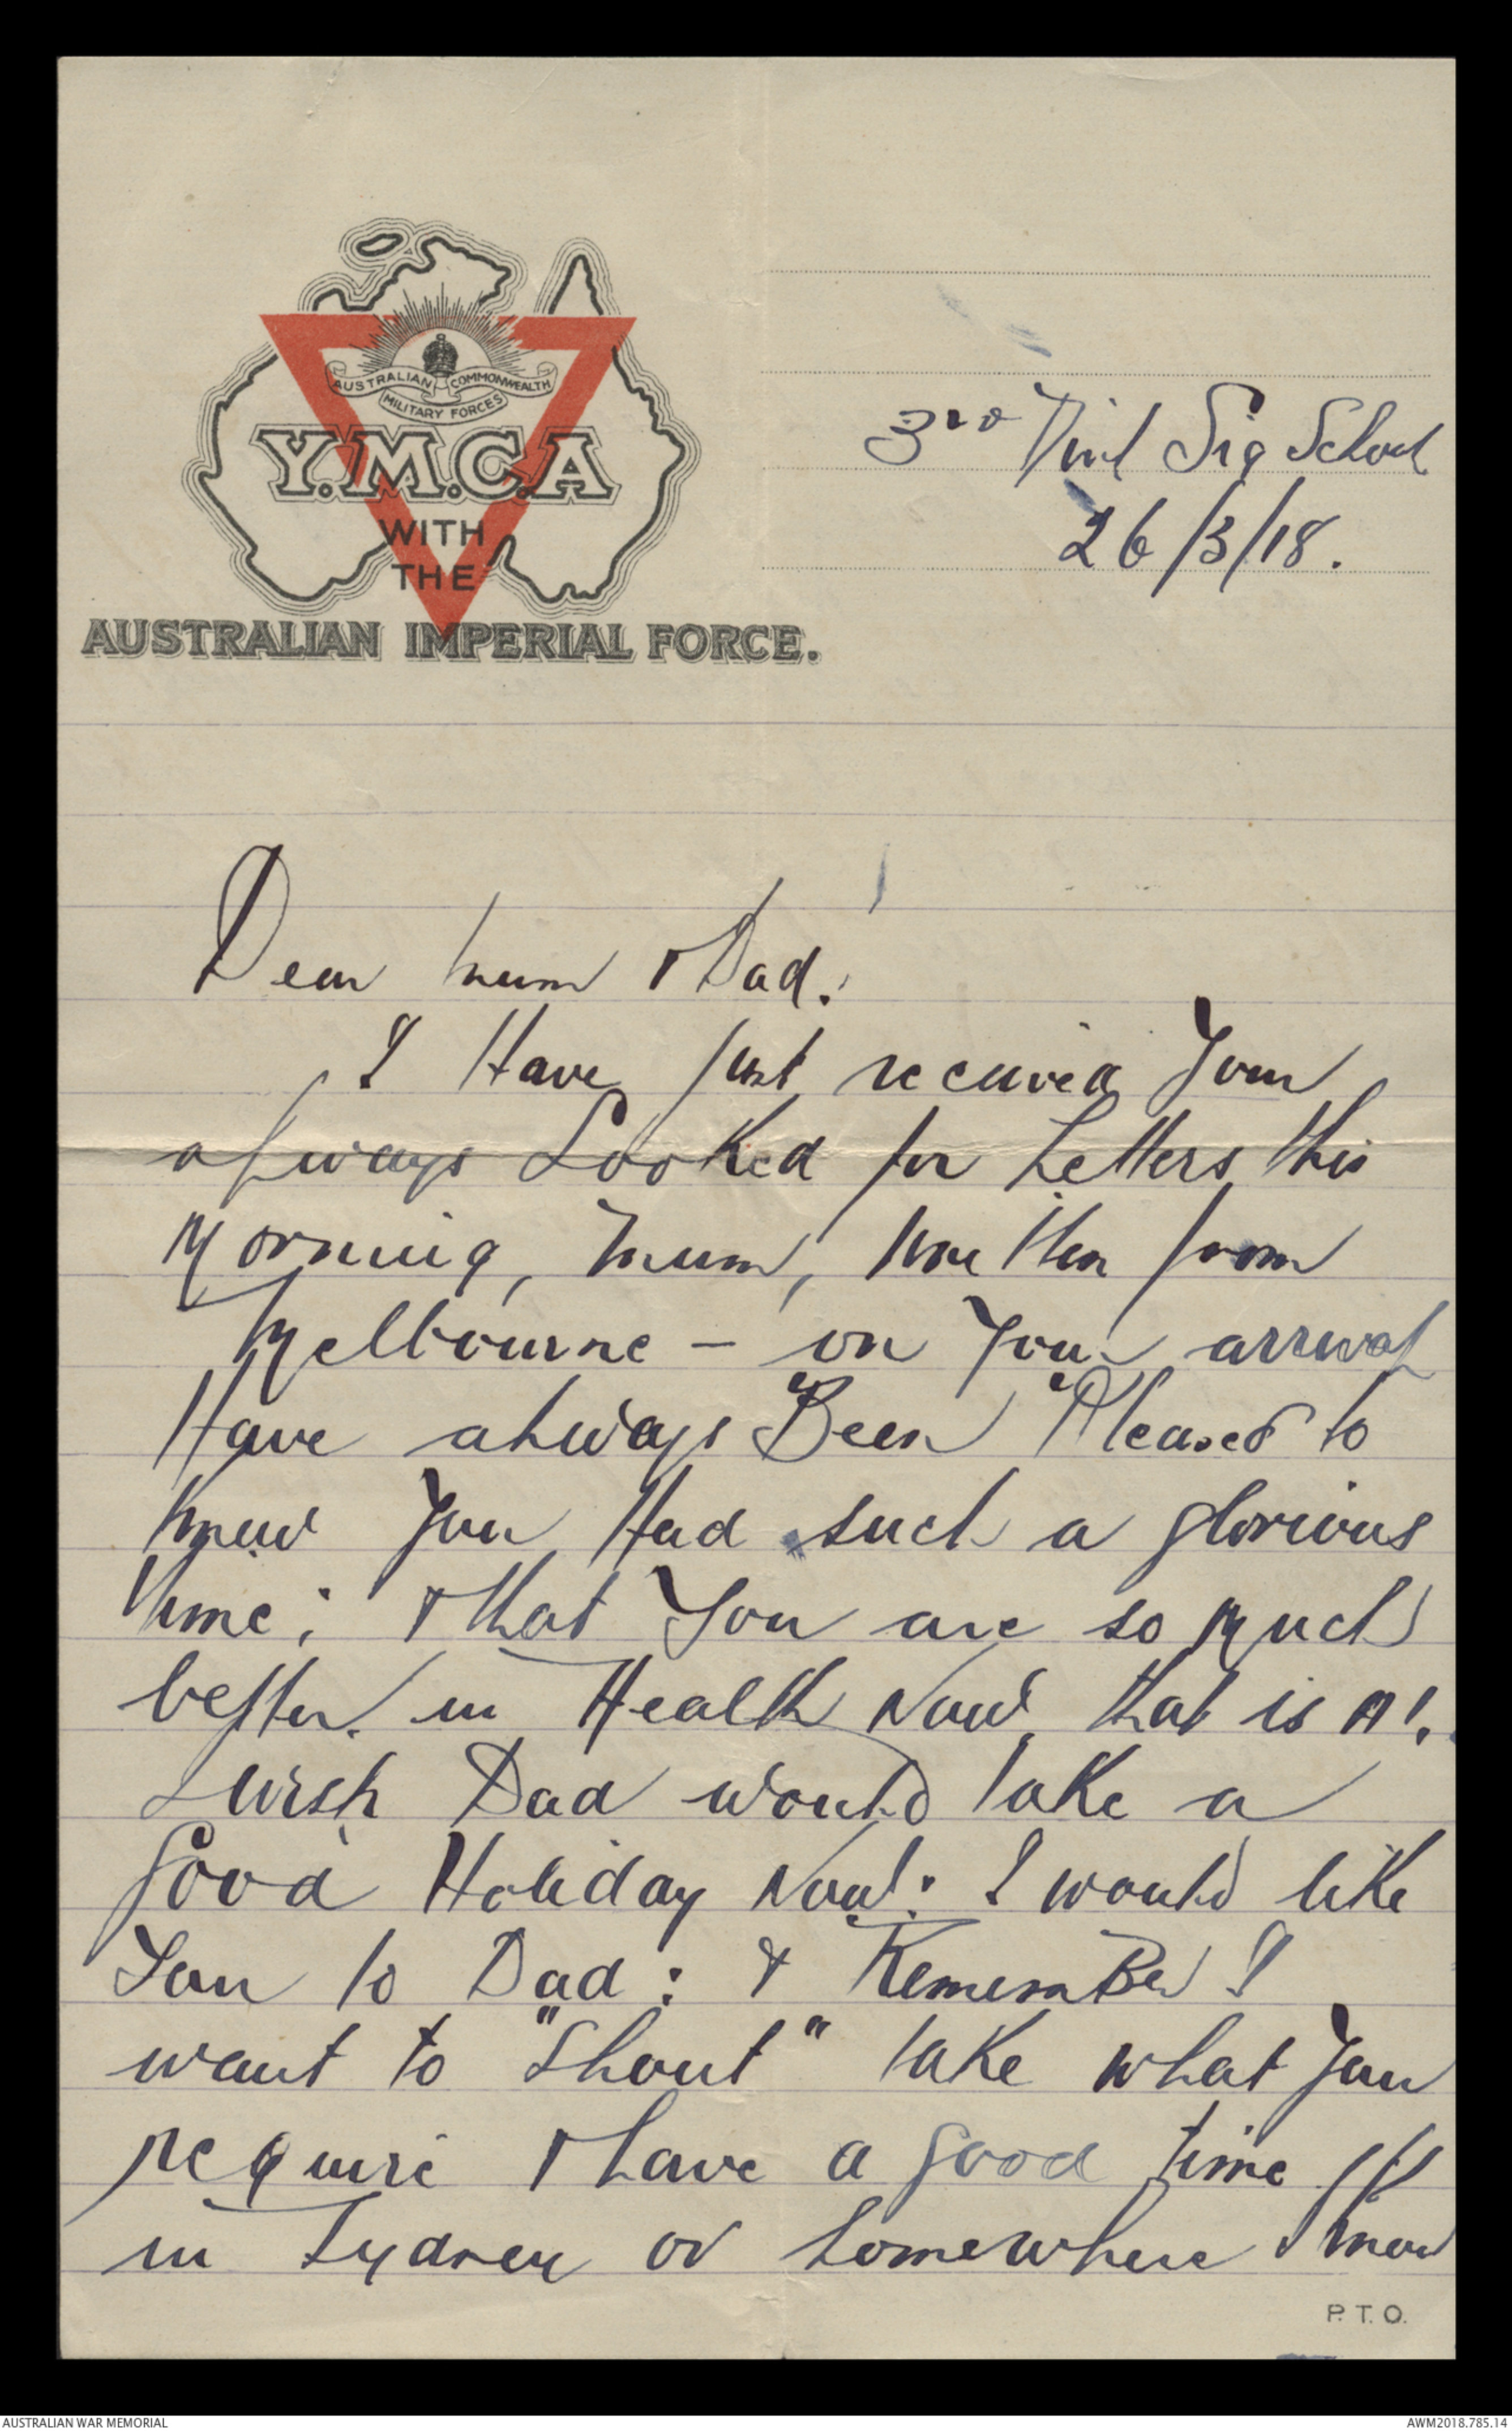 AUSTRALIAN COMMONWEALTH
MILITARY FORCES
Y.M.C.A
WITH
THE
AUSTRALIAN IMPERIAL FORCE.
3rd Divl Sig School
26/3/18.
Dear Mum & Dad!
I Have just received Your
always Looked for Letters this
Morning, Mum, written from
Melbourne - on Your arrival
Have always Been Pleased to
know You Had such a glorious
time; & that You are so Much
better in Health Now, that is A1.
I wish Dad would take a
Good Holiday Now: I would like
You to Dad: & Remember I
want to "Shout" take what You
require & have a good time
in Sydney or Somewhere I know
P.T.O.
AUSTRALIAN WAR MEMORIAL
AWM2018.785.14